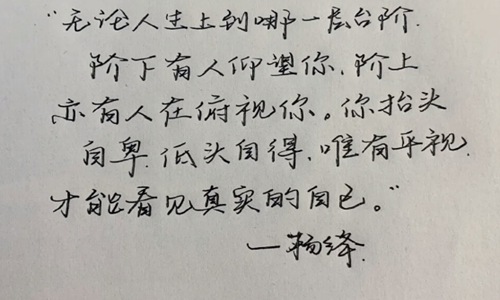 "无论人生上到哪一层台阶.
阶下有人仰望你、阶上
亦有人在俯视你。你抬头
自卑.低头自得、唯有平视.
才能看见真实的自己。"
—杨绛.